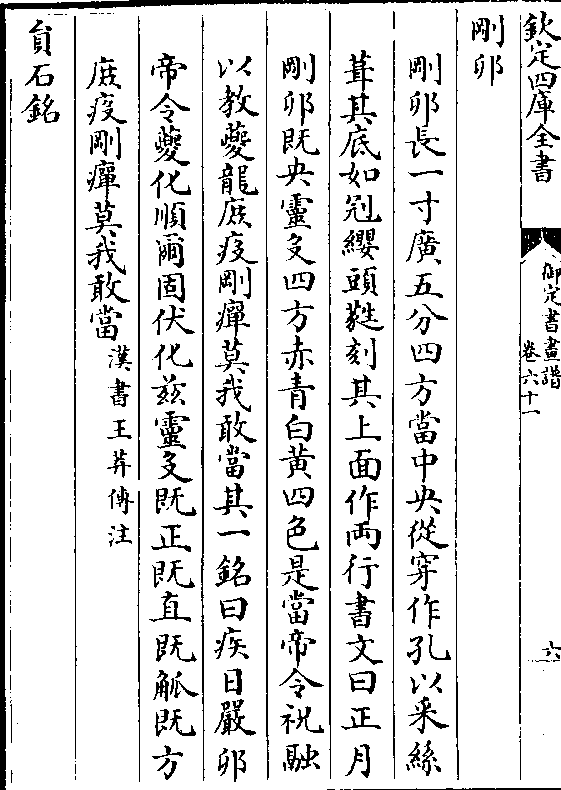 欽定四庫全書
御定書畫譜
卷六十一
六
剛卯
剛卯長一寸廣五分四方當中央從穿作孔以采絲
葺其底如冠纓頭蕤刻其上面作兩行書文曰正月
剛卯既央靈殳四方赤青白黃四色是當帝令祝融
以教夔龍庶疫剛癉莫我敢當其一銘曰疾日嚴卯
帝令夔化順爾固伏化兹靈殳既正既直既觚既方
庶疫剛癉莫我敢當漢書王莽傳注
貟石銘